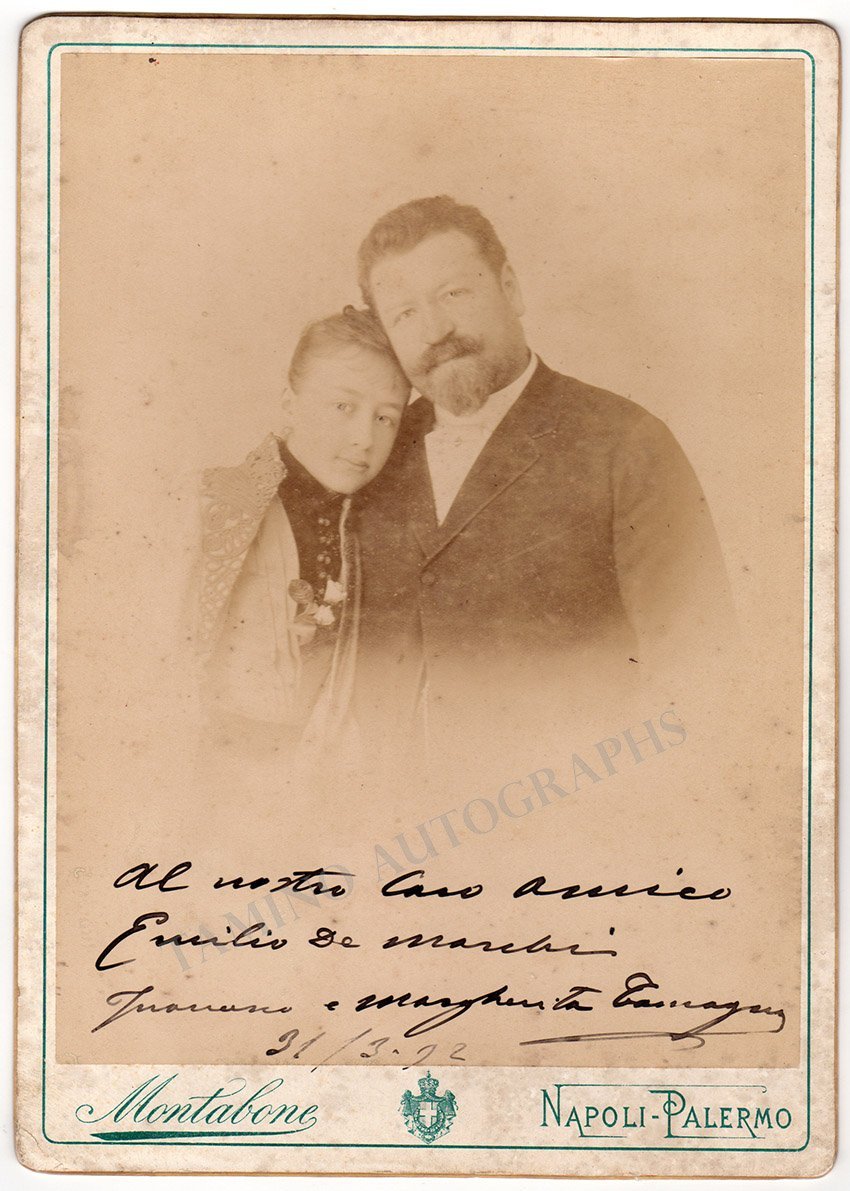 TAMINO AUTOGRAPHS
Al nostro caro amico
Emilio De Marchi
Francesco e Margherita Tamagno
31/3-92
Montabone
NAPOLI-PALERMO